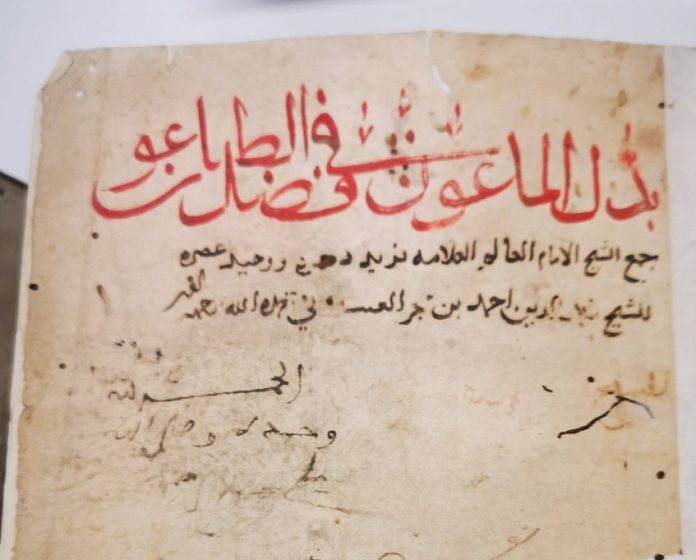 بذل الماعون في فضل الطاعون
جمع الشيخ الامام العالم العلامة فريد دهره ووحيد عصره
للشيخ شهاب الدين احمد بن حجر العسقلاني تغمده الله برحمته
الحمد لله
وحده وصلى الله
على